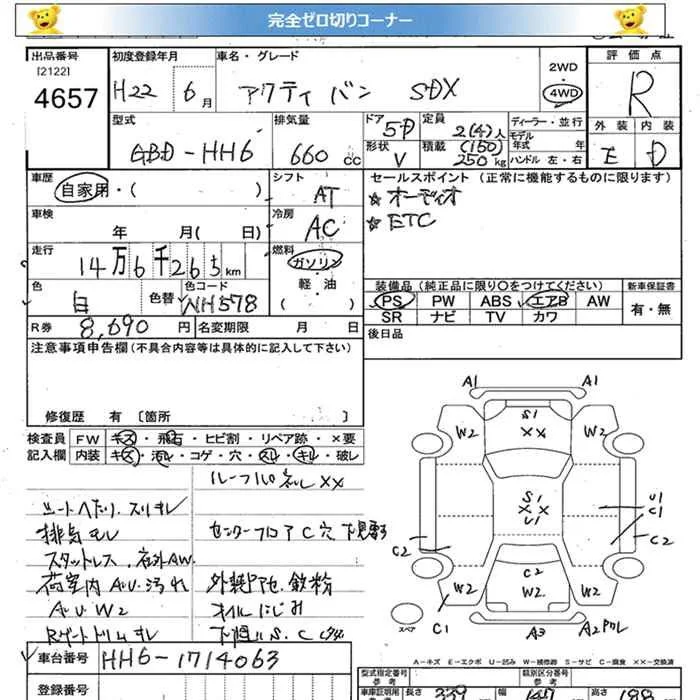 完全ゼロ切りコーナー
出品番号 初度登録年月 車名・グレード 評価点
[2122]
4657 H22 6月 アクティ バン SDX 2WD 4WD R
型式 排気量 ドア 定員 ディーラー・並行 外装 内装
GBD-HH6 660 cc 5D 2(4)人 モデル年式 年 E D
形状 V 積載 (150) 250kg ハンドル 左・右
車歴 シフト セールスポイント (正常に機能するものに限ります)
自家用・( ) AT ☆オーディオ
車検 冷房 ☆ETC
年 月( 日) AC
走行 燃料
14万6千265km ガソリン
色 色替 色コード 軽・油 装備品(純正品に限り〇をつけてください) 新車保証書
白 NH578 ( ) PS PW ABS エアB AW 有・無
SR ナビ TV カワ
R券 8,690円 名変期限 月 日 後日品
注意事項申告欄(不具合内容等は具体的に記入して下さい)
修復歴 有 [箇所 ]
検査員 FW キズ・飛石・ヒビ割・リペア跡・×要
記入欄 内装 キズ・汚レ・コゲ・穴・スレ・キレ・破レ
シートヘたり.スリキレ
排気モレ センターフロア C 穴 下見要す
スタットレス.社外AW.
荷室内 AU汚れ 外装P他.鉄粉
AU W2 オイルにじみ
Rゲートトリムキレ
車台番号 HH6-1714063
登録番号
A1 A1
S1
W2 ×× W2
S1
××
U1
U1
C1
C2 C2
C2
W2 W2 W2
スペア C1 A3 A2
A-キズ E-エクボ U-凹み W-補修跡 S-サビ C-腐食 ××-交換済
型式指定番号 参考 類別区分番号 参考
長さ 339 幅 147 高さ 188